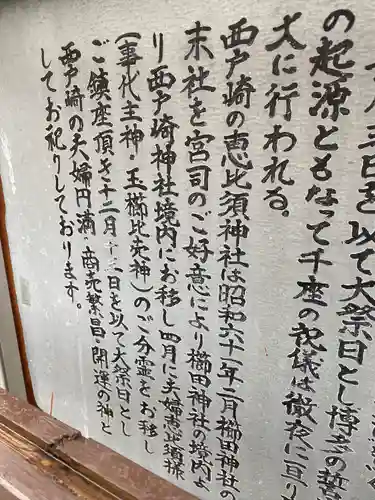 月三日を以て大祭日とし博多の誓
の起源ともなって千座の祝儀は徹夜に亘り
大に行われる。
西戸崎の恵比須神社は昭和六十一年二月櫛田神社の
末社を宮司のご好意により櫛田神社の境内よ
り西戸崎神社境内にお移し四月に夫婦恵比須様
(事代主神・玉櫛比売神)のご分霊をお移し
ご鎮座頂き十二月十三日を以て大祭日とし
西戸崎の夫婦円満・商売繁昌・開運の神と
してお祀りしております。